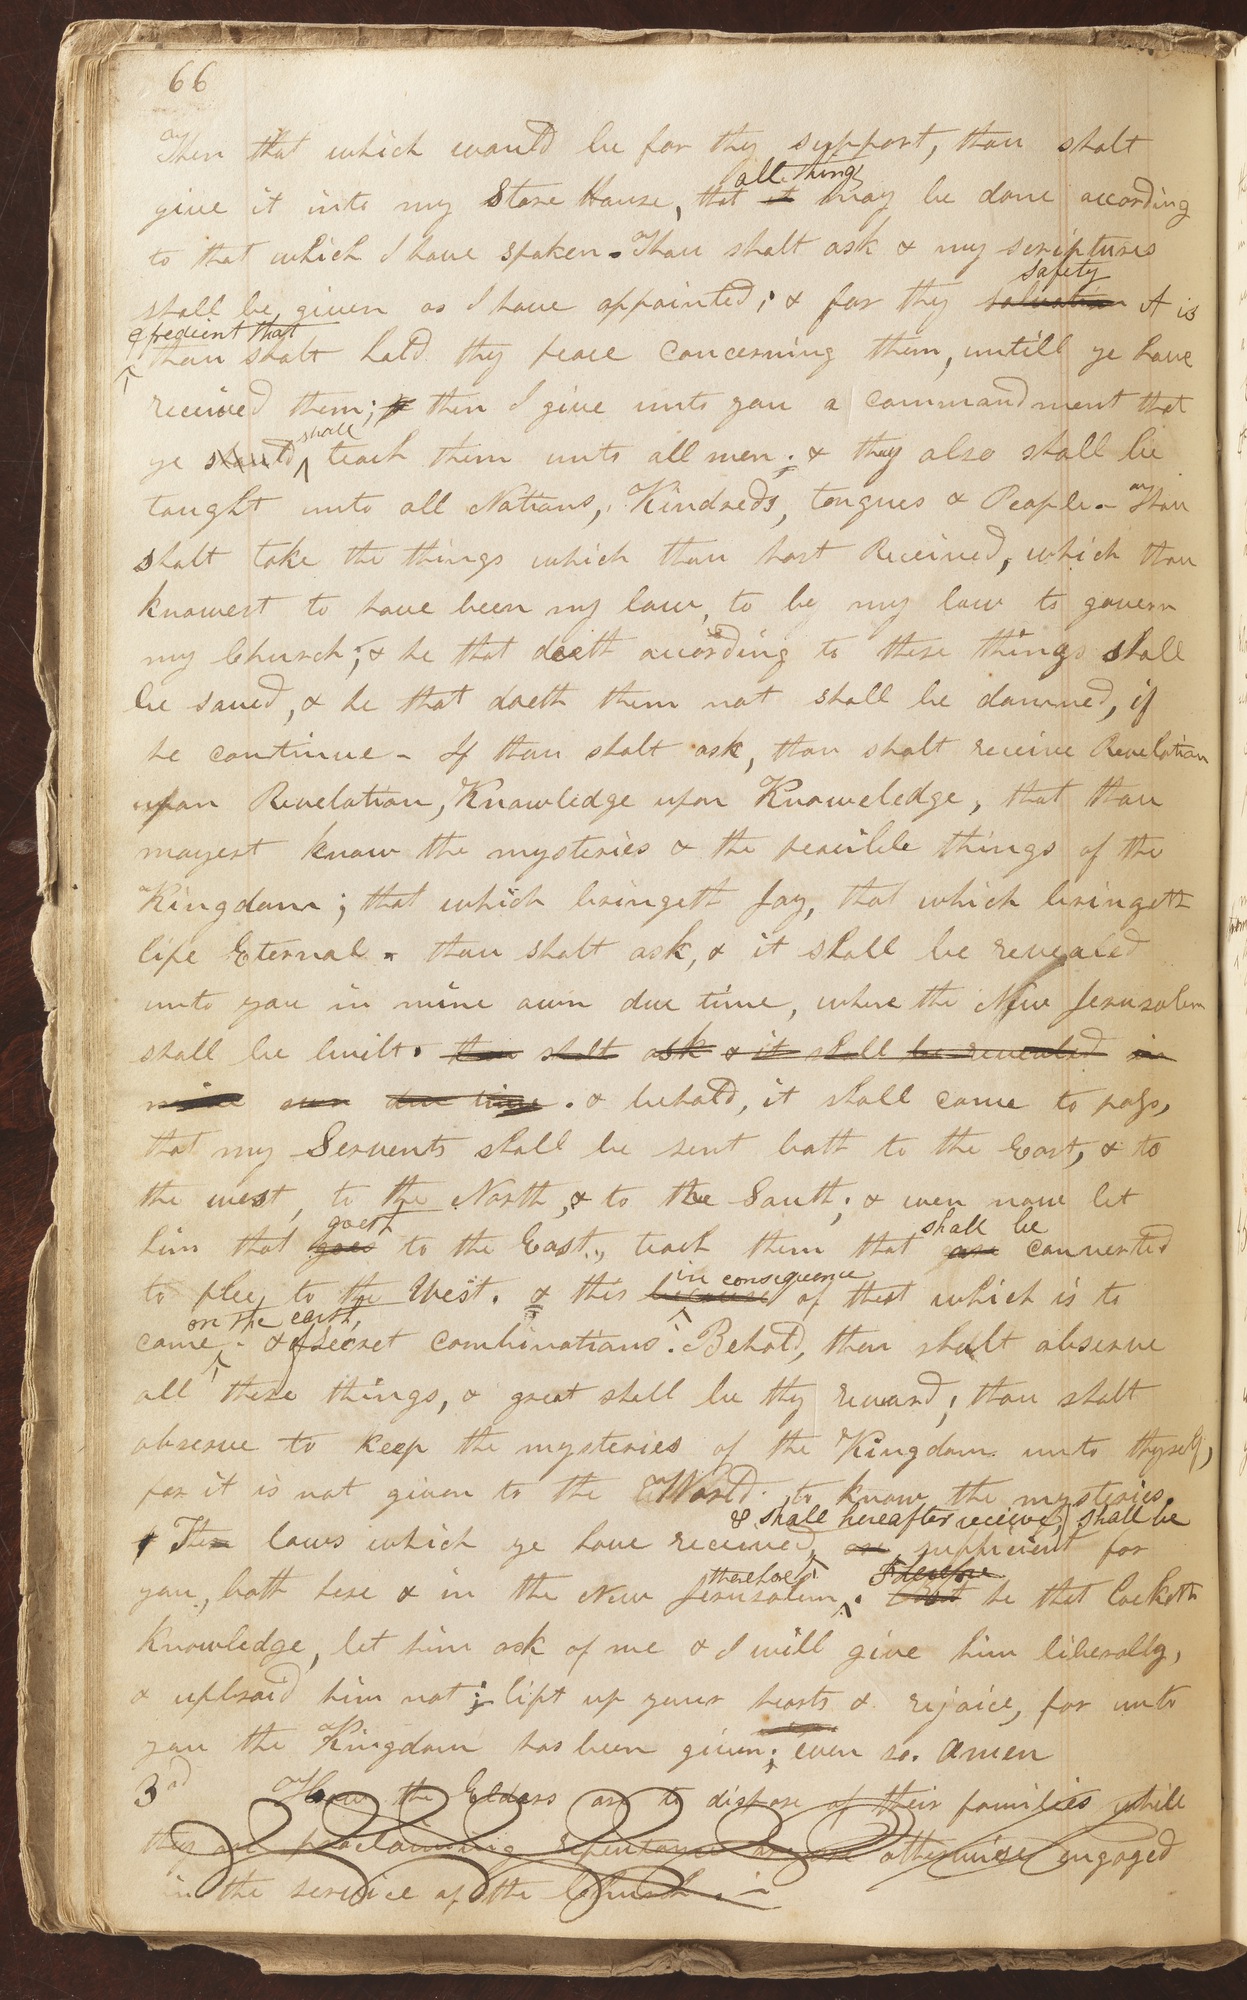 66
Then that which would be for thy support, thou shalt
all things
give it into my Store House, that it may be done according
to that which I have spoken. Thou shalt ask & my scriptures
safety
shall be given as I have appointed; & for thy salvation it is
expedient that
thou shalt hold thy peace concerning them, untill ye have
received them; & then I give unto you a commandment that
shall
ye should teach them unto all men; & they also shall be
taught unto all Nations, Kindreds, tongues & People. - Thou
shalt take the things which thou hast Received, which thou
knowest to have been my law, to be my law to govern
my Church; & he that doeth according to these things shall
be saved, & he that doeth them not shall be damned, if
he continue - If thou shalt ask, thou shalt receive Revelation
upon Revelation, Knowledge upon Knoweledge, that thou
mayest know the mysteries & the peacible things of the
Kingdom; that which bringeth Joy, that which bringeth
life Eternal. thou shalt ask, & it shall be revealed
unto you in mine own due time, where the New Jerusalem
shall be built. thou shalt ask & it shall be revealed in
mine own due time. & behold, it shall come to pass,
that my Servents shall be sent both to the East, & to
the west, to the North, & to the South; & even now let
goeth shall be
him that goes to the East, teach them that are converted
in consequence
to flee to the West. & this because of that which is to
on the earth,
come - & of secret combinations. Behold, thou shalt observe
all these things, & great shall be thy reward; thou shalt
observe to keep the mysteries of the Kingdom unto thyself,
for it is not given to the World to know the mysteries.
& shall hereafter receive, shall be
Then laws which ye have received, are sufficient for
therefore Therefore
you, both here & in the New Jerusalem. But he that lacketh
Knowledge, let him ask of me & I will give him liberally,
& upbraid him not; lift up your hearts & rejoice, for unto
you the Kingdom has been given; even so. Amen
3d How the Elders are to dispose of their families while
they are proclaiming repentance or are otherwise engaged
in the service of the Church. -